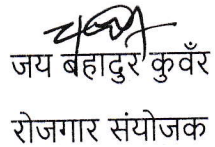 जय बहादुर कुवँर
रोजगार संयोजक